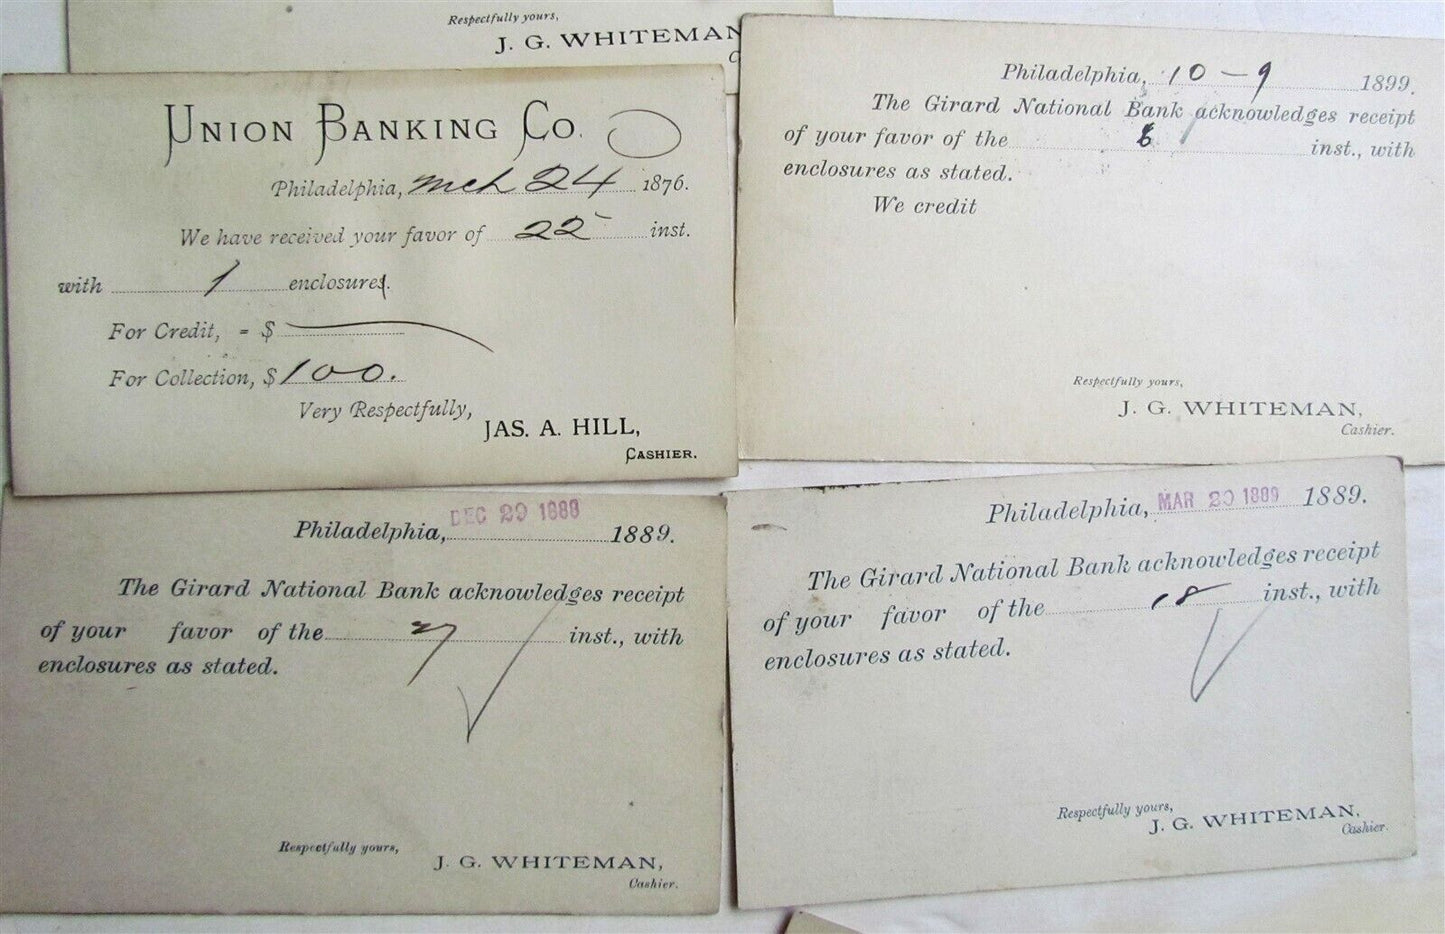 Respectfully yours,
J. G. WHITEMAN
UNION BANKING CO.
Philadelphia, Mch 24 1876.
We have received your favor of 22 inst.
with 1 enclosures.
For Credit, = $
For Collection, $ 100.
Very Respectfully,
JAS. A. HILL,
CASHIER.
Philadelphia, 10-9 1899.
The Girard National Bank acknowledges receipt
of your favor of the 8 inst., with
enclosures as stated.
We credit
Respectfully yours,
J. G. WHITEMAN,
Cashier.
Philadelphia, DEC 29 1889.
The Girard National Bank acknowledges receipt
of your favor of the 27 inst., with
enclosures as stated.
Respectfully yours,
J. G. WHITEMAN,
Cashier.
Philadelphia, MAR 20 1889 1889.
The Girard National Bank acknowledges receipt
of your favor of the 18 inst., with
enclosures as stated.
Respectfully yours,
J. G. WHITEMAN,
Cashier.